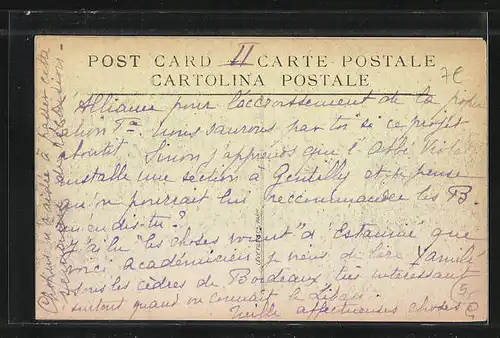 POST CARD II CARTE POSTALE
CARTOLINA POSTALE
7E
Alliance pour l'accroissement de la popu
lation Fse nous saurons par toi si ce projet
aboutit. Sinon j'apprends que l'Abbé Violet
installe une section à Gentilly et je pense
qu'on pourrait lui recommander les B.
qu'en dis-tu?
J'ai lu "les choses voient" d'Estaunié que
voici académicien je viens de lire Yamilé
sous les cèdres de Bordeaux très intéressant
surtout quand on connait le Liban.
Mille affectueuses choses